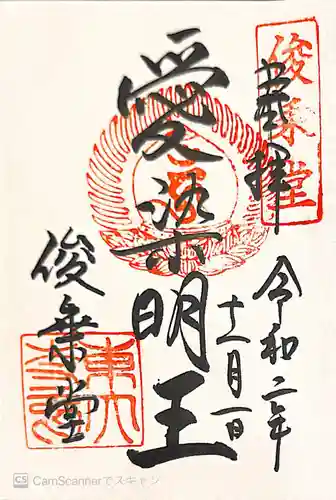 俊乗堂
奉拝
令和二年
十一月一日
愛染明王
俊乗堂
CS CamScannerでスキャン